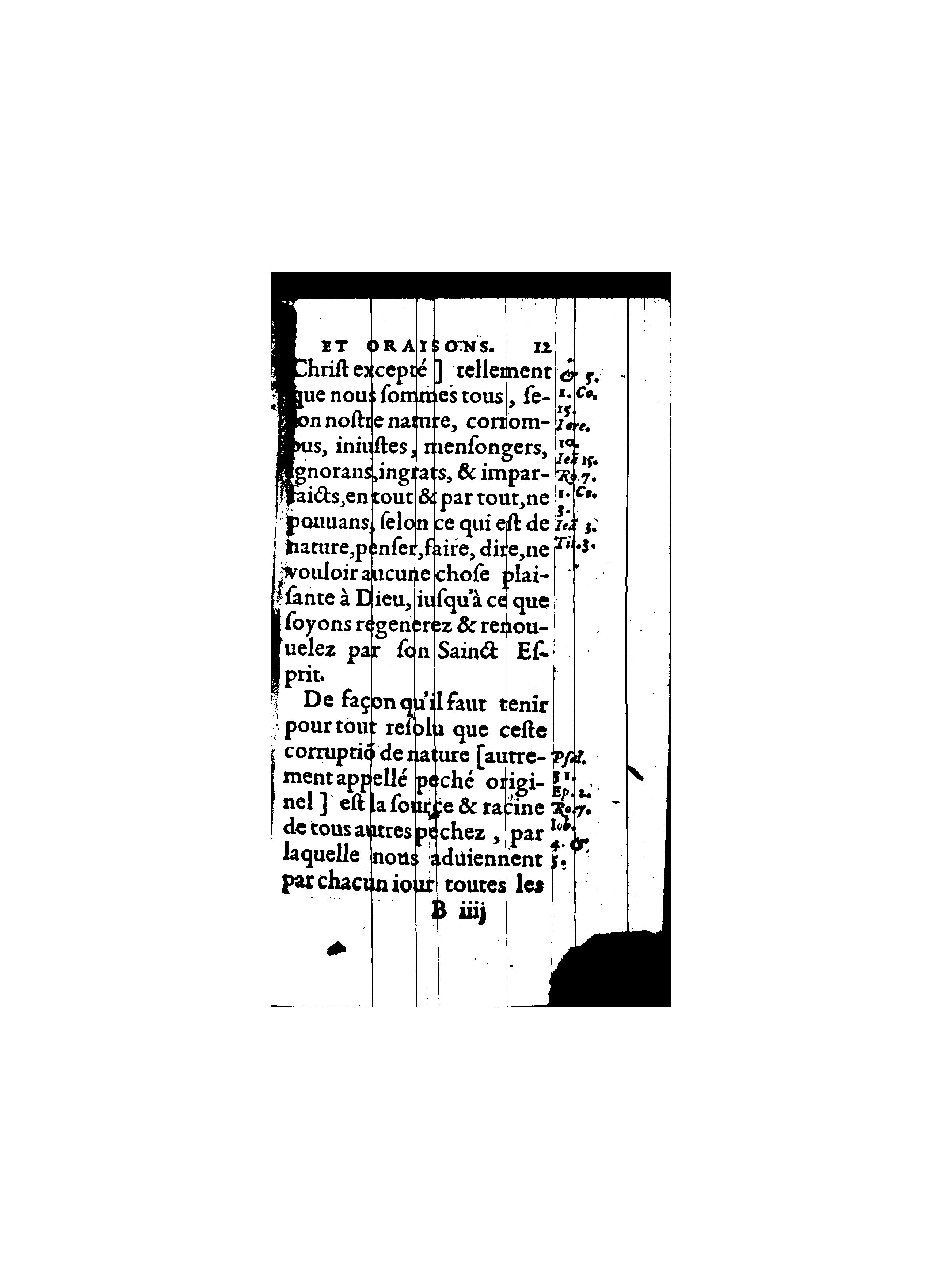 ET ORAISONS. 12
Chriſt excepté ] tellement
que nous ſommes tous, ſe-
lon noſtre nature, corrom-
pus, iniuſtes, menſongers,
ignorans, ingrats, & impar-
faicts, en tout & par tout, ne
pouuans, ſelon ce qui eſt de
nature, penſer, faire, dire, ne
vouloir aucune choſe plai-
ſante à Dieu, iuſqu'à ce que
ſoyons regenerez & renou-
uelez par ſon Sainct Eſ-
prit.
De façon qu'il faut tenir
pour tout reſolu que ceſte
corruptiō de nature [autre-
ment appellé peché origi-
nel ] eſt la ſource & racine
de tous autres pechez, par
laquelle nous aduiennent
par chacun iour toutes les
B iiij
& 5.
1. Co.
15.
Iere.
10.
15.
Ro. 7.
1. Co.
3.
3.
Tit. 3.
Pſal.
51.
Ep. 2.
Ro. 7.
Iob.
4. &
5.